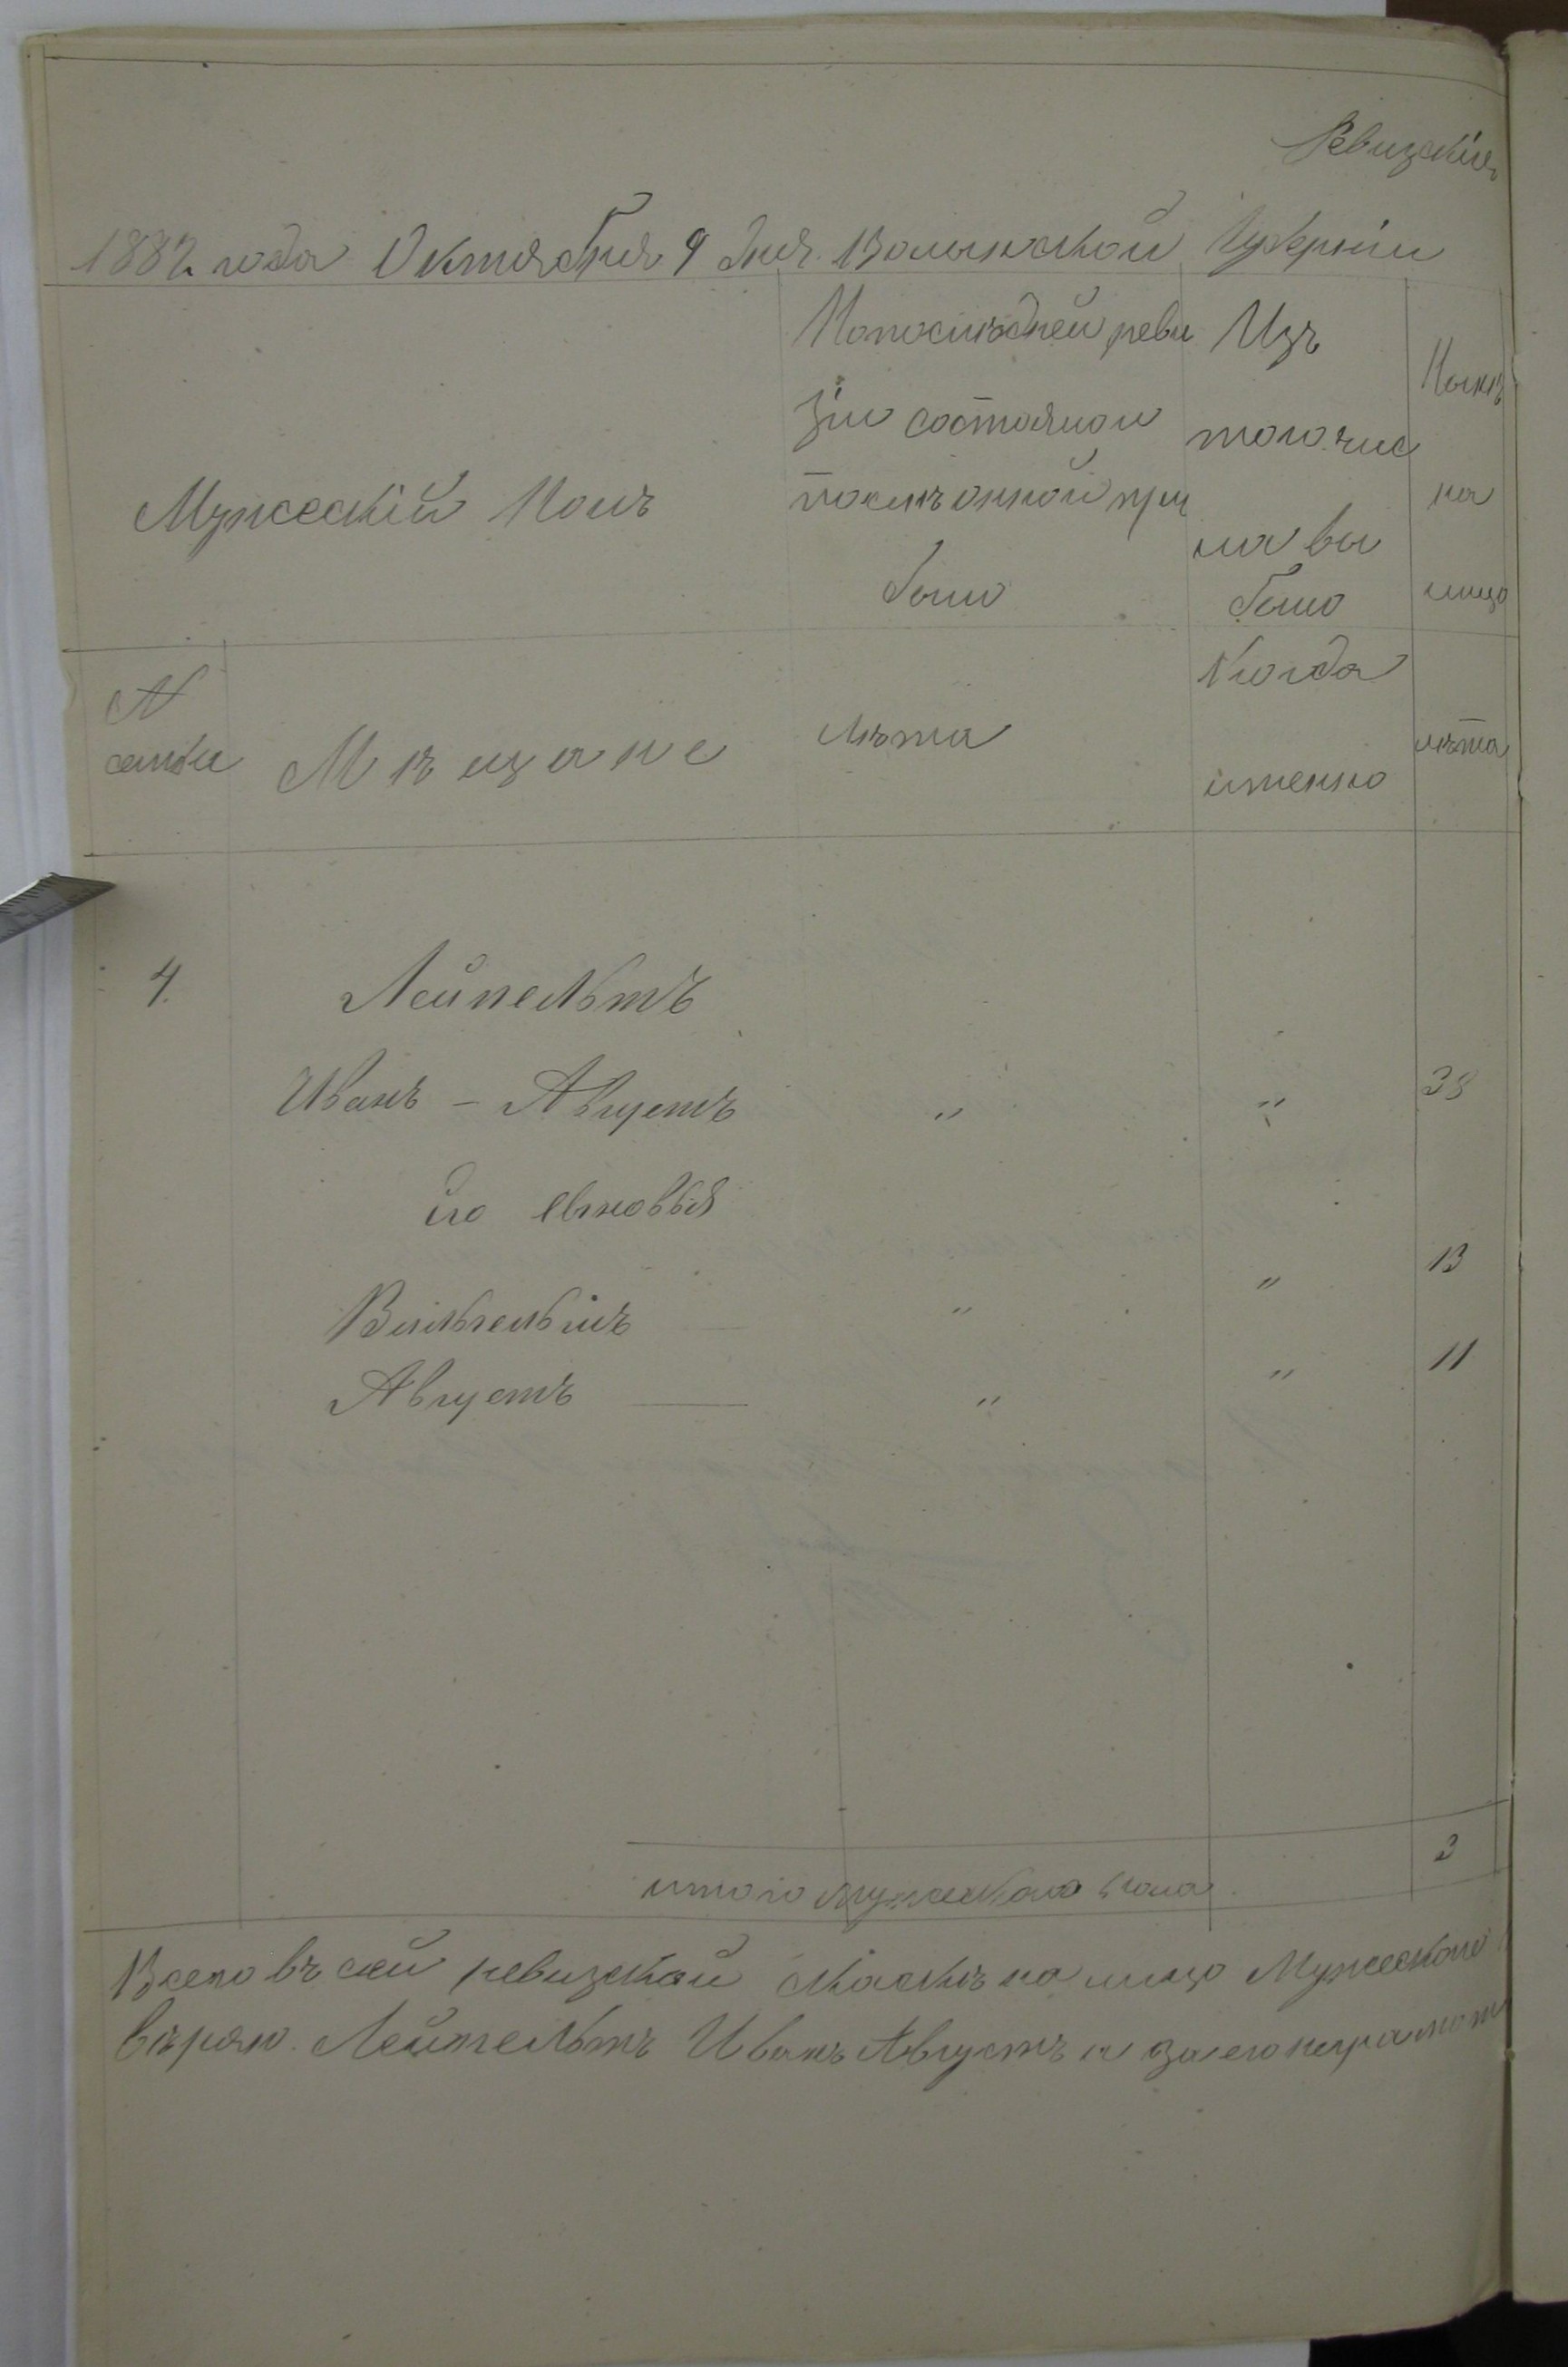 Ревизскія
1882 года Октября 9 дня Волынской Губерніи
Мужескій Полъ
Попослѣдней реви
зіи состоялои
послѣ онной при
было
Изъ
того чис
ла вы
было
Нынѣ
на
лицо
N
семьи
Мѣщане
лѣта
Когда
именно
лѣта
4.
Лейпельтъ
Иванъ - Августъ " " 38
Его сыновья
Вильгельмъ " " 13
Августъ " " 11
итого мужескаго пола 3
Всего въ сей ревизской сказкѣ на лицо Мужескаго
вѣрян. Лейпельтъ Иванъ Августъ а за его неграмотн